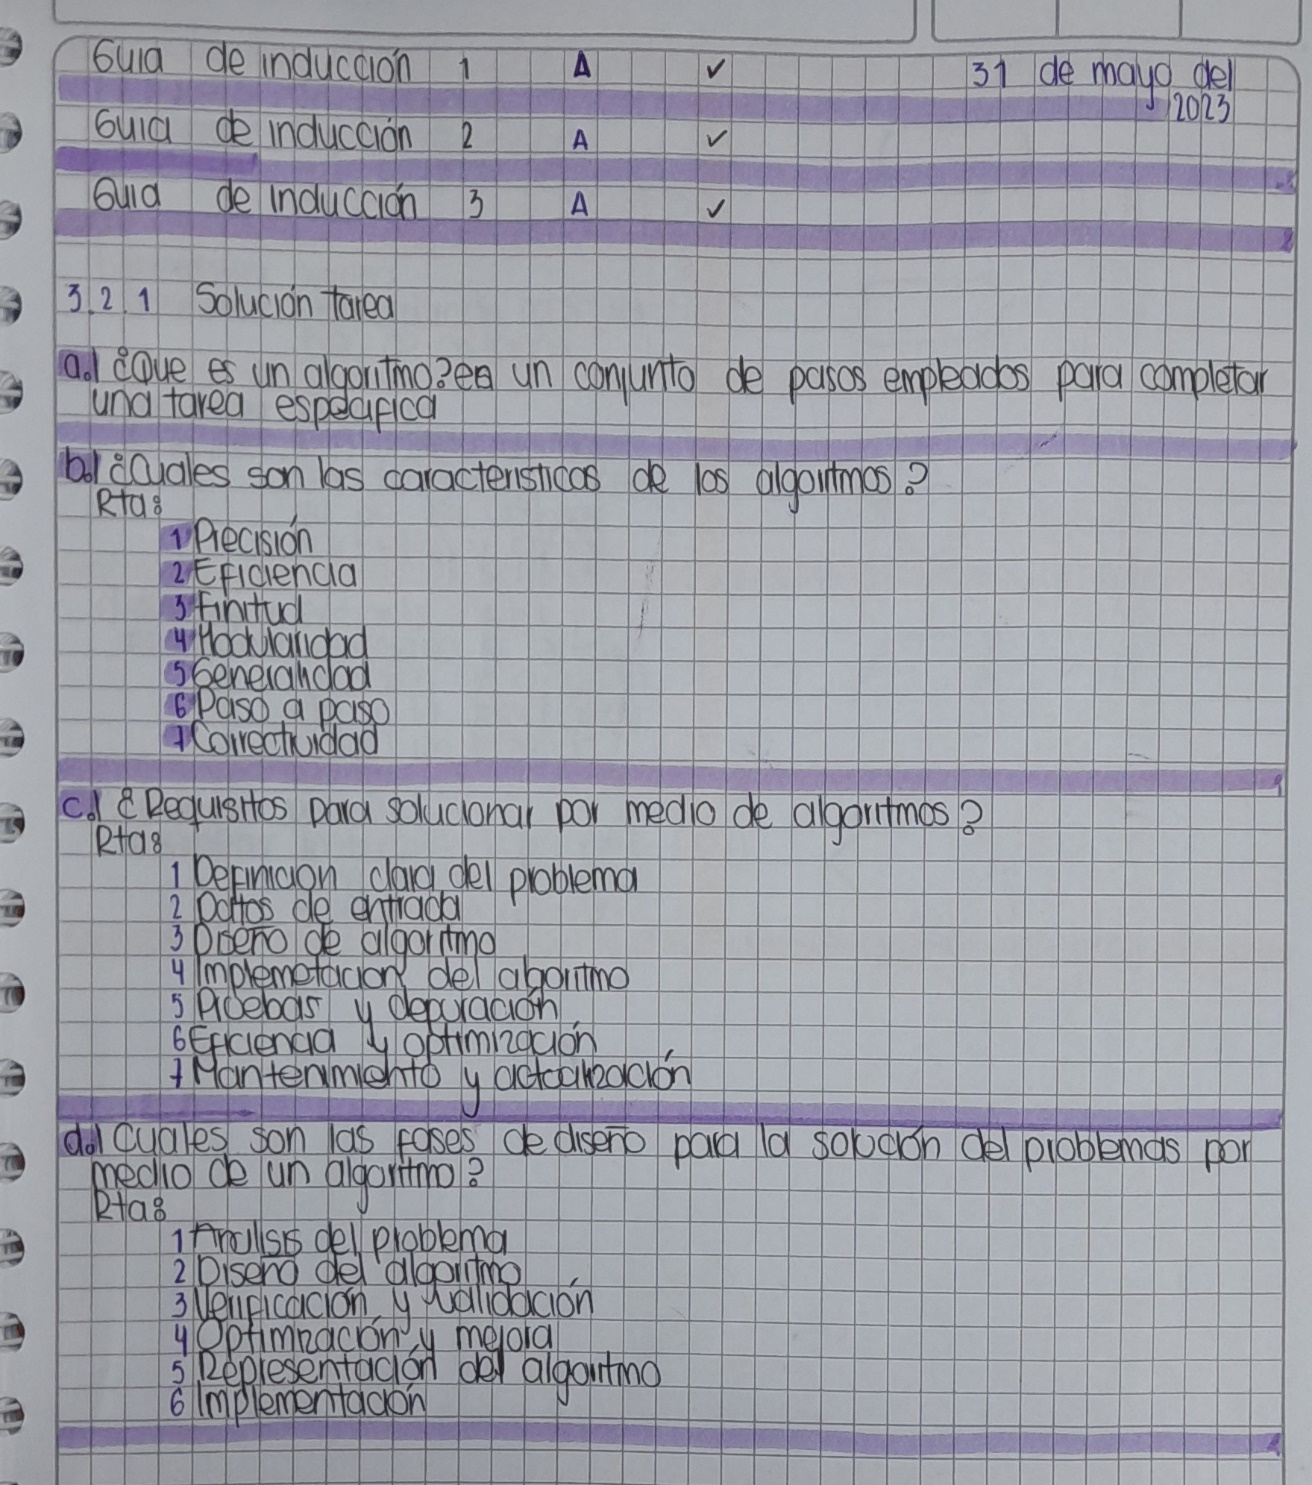 Guia de inducción 1 A ✓ 31 de mayo del
2023
Guia de inducción 2 A ✓
Guia de inducción 3 A ✓
3.2.1 Solución tarea
a.) ¿Que es un algoritmo? es un conjunto de pasos empleados para completar
una tarea especifica
b.) ¿Cuales son las caracteristicas de los algoritmos?
Rta:
1 Precisión
2 Eficiencia
3 finitud
4 Modularidad
5 Generalidad
6 Paso a paso
7 Correctividad
c.) ¿Requisitos para solucionar por medio de algoritmos?
Rta:
1 Definicion clara del problema
2 Dattos de entrada
3 Diseño de algoritmo
4 Implemetacion del algoritmo
5 Pruebas y depuración
6 Eficiencia y optimización
7 Mantenimiento y actualización
d.) Cuales son las fases de diseño para la solución del problemas por
medio de un algoritmo?
Rta:
1 Analisis del problema
2 Diseño del algoritmo
3 Verificación y validación
4 Optimización y mejora
5 Representación del algoritmo
6 Implementación